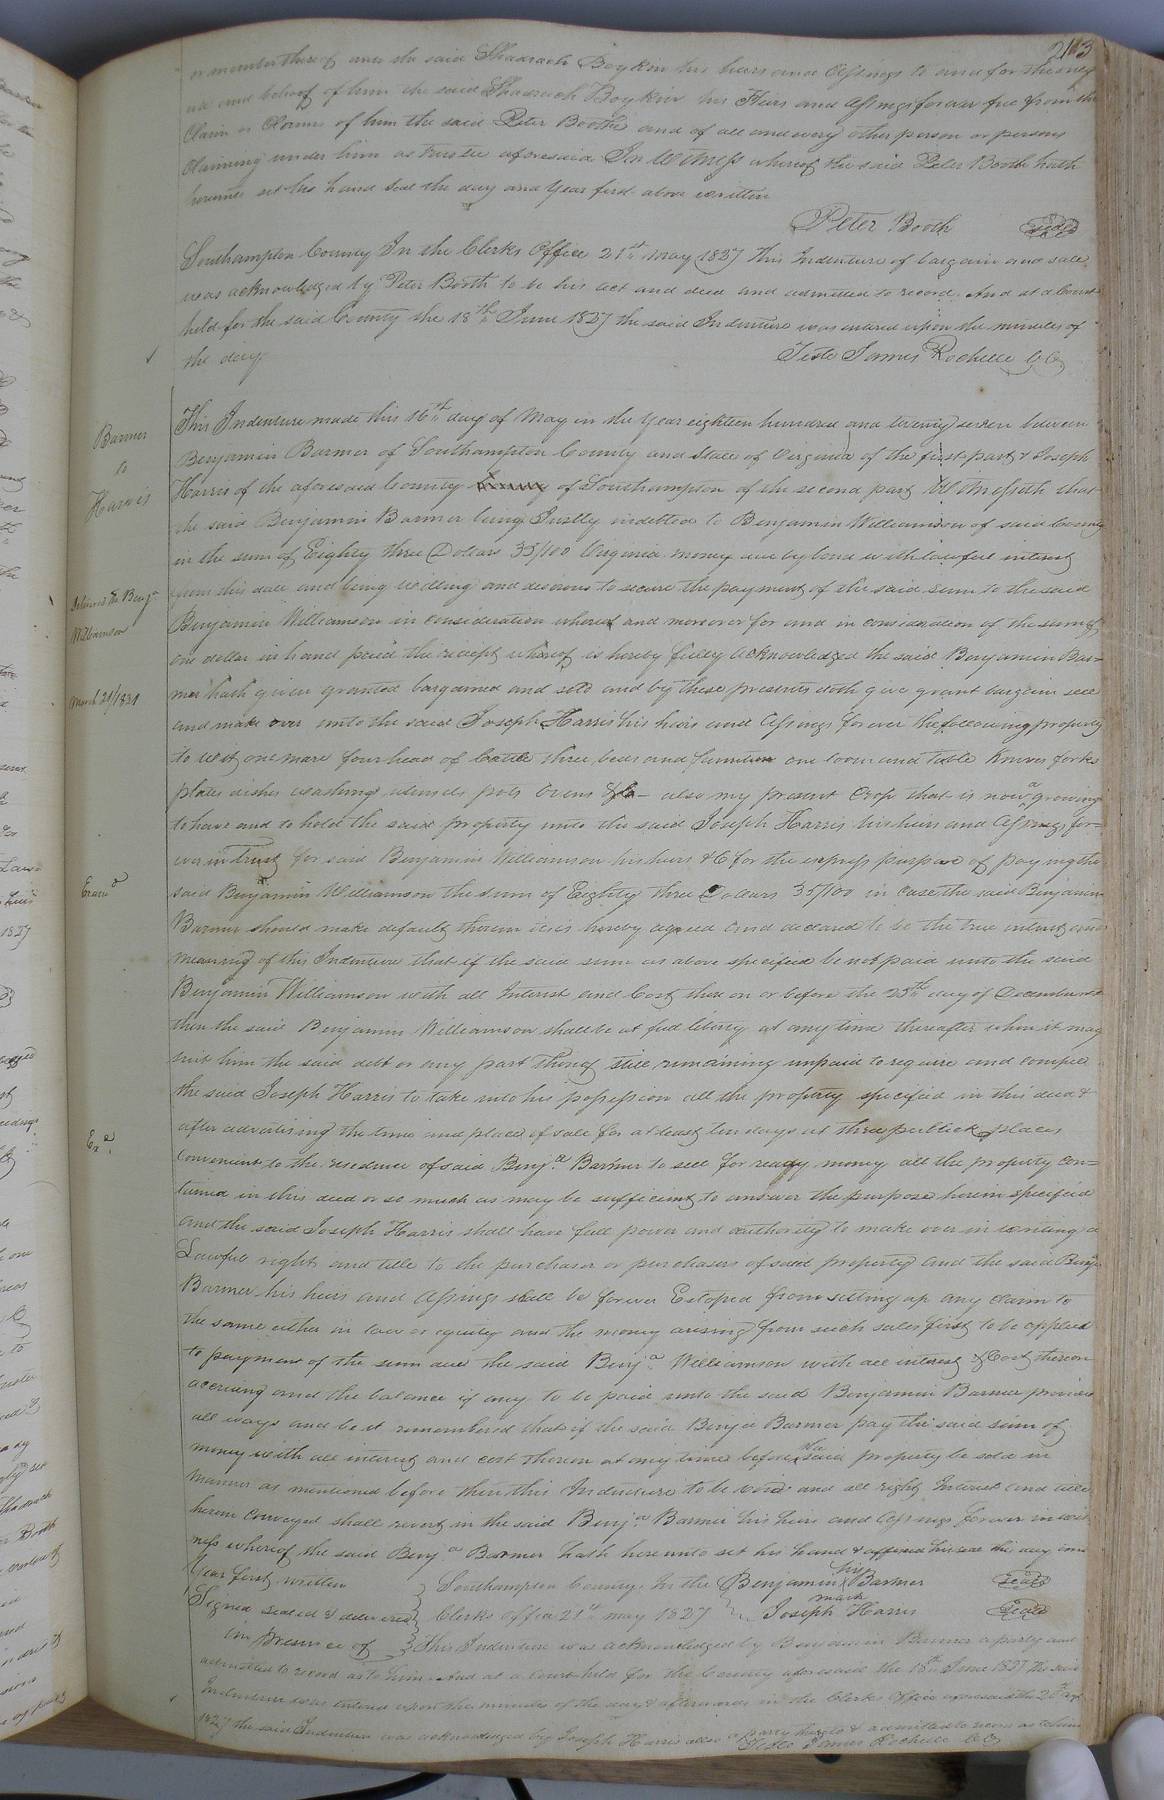 213
or member thereof and the said Shadrach Boykin his heirs and Assings to and for the only
use and behoof of him the said Shadrach Boykin his Heirs and Assings forever free from the
Claim or Claims of him the said Peter Booth and of all and every other person or persons
Claiming under him as trustee aforesaid In Witness whereof the said Peter Booth hath
hereunto set his hand Seal the day and year first above written
Peter Booth seal
Southampton County In the Clerks Office 21st may 1827 This Indenture of bargain and sale
was acknowledged by Peter Booth to be his act and deed and admitted to record. And at a Court
held for the said County the 18th June 1827 the said Indenture was entered upon the minutes of
the day.
Teste James Rochelle C.C.
Barmer
to
Harris
Delivered to Benja
Williamson
March 21/1831
Examd
Exd
This Indenture made this 16th day of May in the year eighteen hundred and twenty seven between
Benjamin Barmer of Southampton County and State of Virginia of the first part & Joseph
Harris of the aforesaid County of Southampton of the second part Witnesseth that
the said Benjamin Barmer being Justly indetted to Benjamin Williamson of said County
in the sum of Eighty three Dollars 35/100 Virginia money due by bond with lawful interest
from this date and being willing and desirous to secure the payment of the said sum to the said
Benjamin Williamson in consideration whereof and moreover for and in consideration of the sum of
one dollar in hand paid the receipt whereof is hereby fully acknowledged the said Benjamin Bar=
mer hath given granted bargained and sold and by these presents doth give grant bargain sell
and make over unto the said Joseph Harris his heirs and Assings forever the following property
to wit one mare four head of Cattle three beds and furniture one loom and table Knives forks
plates dishes washing utensils pots Ovens &c – also my present Crop that is now a growing
to have and to hold the said property unto the said Joseph Harris his heirs and Assings for=
ever in Trust for said Benjamin Williamson his heirs &C for the express purpose of paying the
said Benjamin Williamson the sum of Eighty three Dollars 35/100 in case the said Benjamin
Barmer should make default therein it is hereby agreed and declared to be the true intent and
meaning of this Indenture that if the said sum as above specified be not paid unto the said
Benjamin Williamson with all Interest and Cost thereon or before the 25th day of December next
then the said Benjamin Williamson shall be at full liberty at any time thereafter when it may
suit him the said debt or any part thereof still remaining unpaid to require and compell
the said Joseph Harris to take into his possession all the property specified in this deed &
after advertising the time and place of sale for at least ten days at three publick places
Convenient to the residence of said Benja Barmer to sell for ready money all the property con=
tained in this deed or so much as may be sufficient to answer the purpose herein specified
and the said Joseph Harris shall have full power and authority to make over in writing a
Lawful right and title to the purchaser or purchasers of said property and the said Benja
Barmer his heirs and Assings shall be forever Estoped from setting up any claim to
the same either in law or equity and the money arising from such sales first to be applied
to payment of the sum due the said Benja Williamson with all interest & Cost thereon
accruing and the balance if any to be paid unto the said Benjamin Barmer provided
all ways and be it remembered that if the said Benja Barmer pay the said sum of
money with all interest and cost thereon at any time before the said property be sold in
manner as mentioned before then this Indenture to be void and all right Interest and title
herein conveyed shall revert in the said Benja Barmer his heirs and Assings forever in wit
ness whereof the said Benja Barmer hath hereunto set his hand & affixed his seal the day and
year first written } Southampton County. In the Benjamin his X mark Barmer seal
Signed sealed & delivered } Clerks Office 21st may 1827 } Joseph Harris seal
in presence of } This Indenture was acknowledged by Benjamin Barmer a party and
admitted to record as to him. And at a Court held for the County aforesaid the 18th June 1827 the said
Indenture was entered upon the minutes of the day & afterwards in the Clerks Office aforesaid the
1827 the said Indenture was acknowledged by Joseph Harris also a party thereto & admitted to record as to him
Teste James Rochelle C.C.